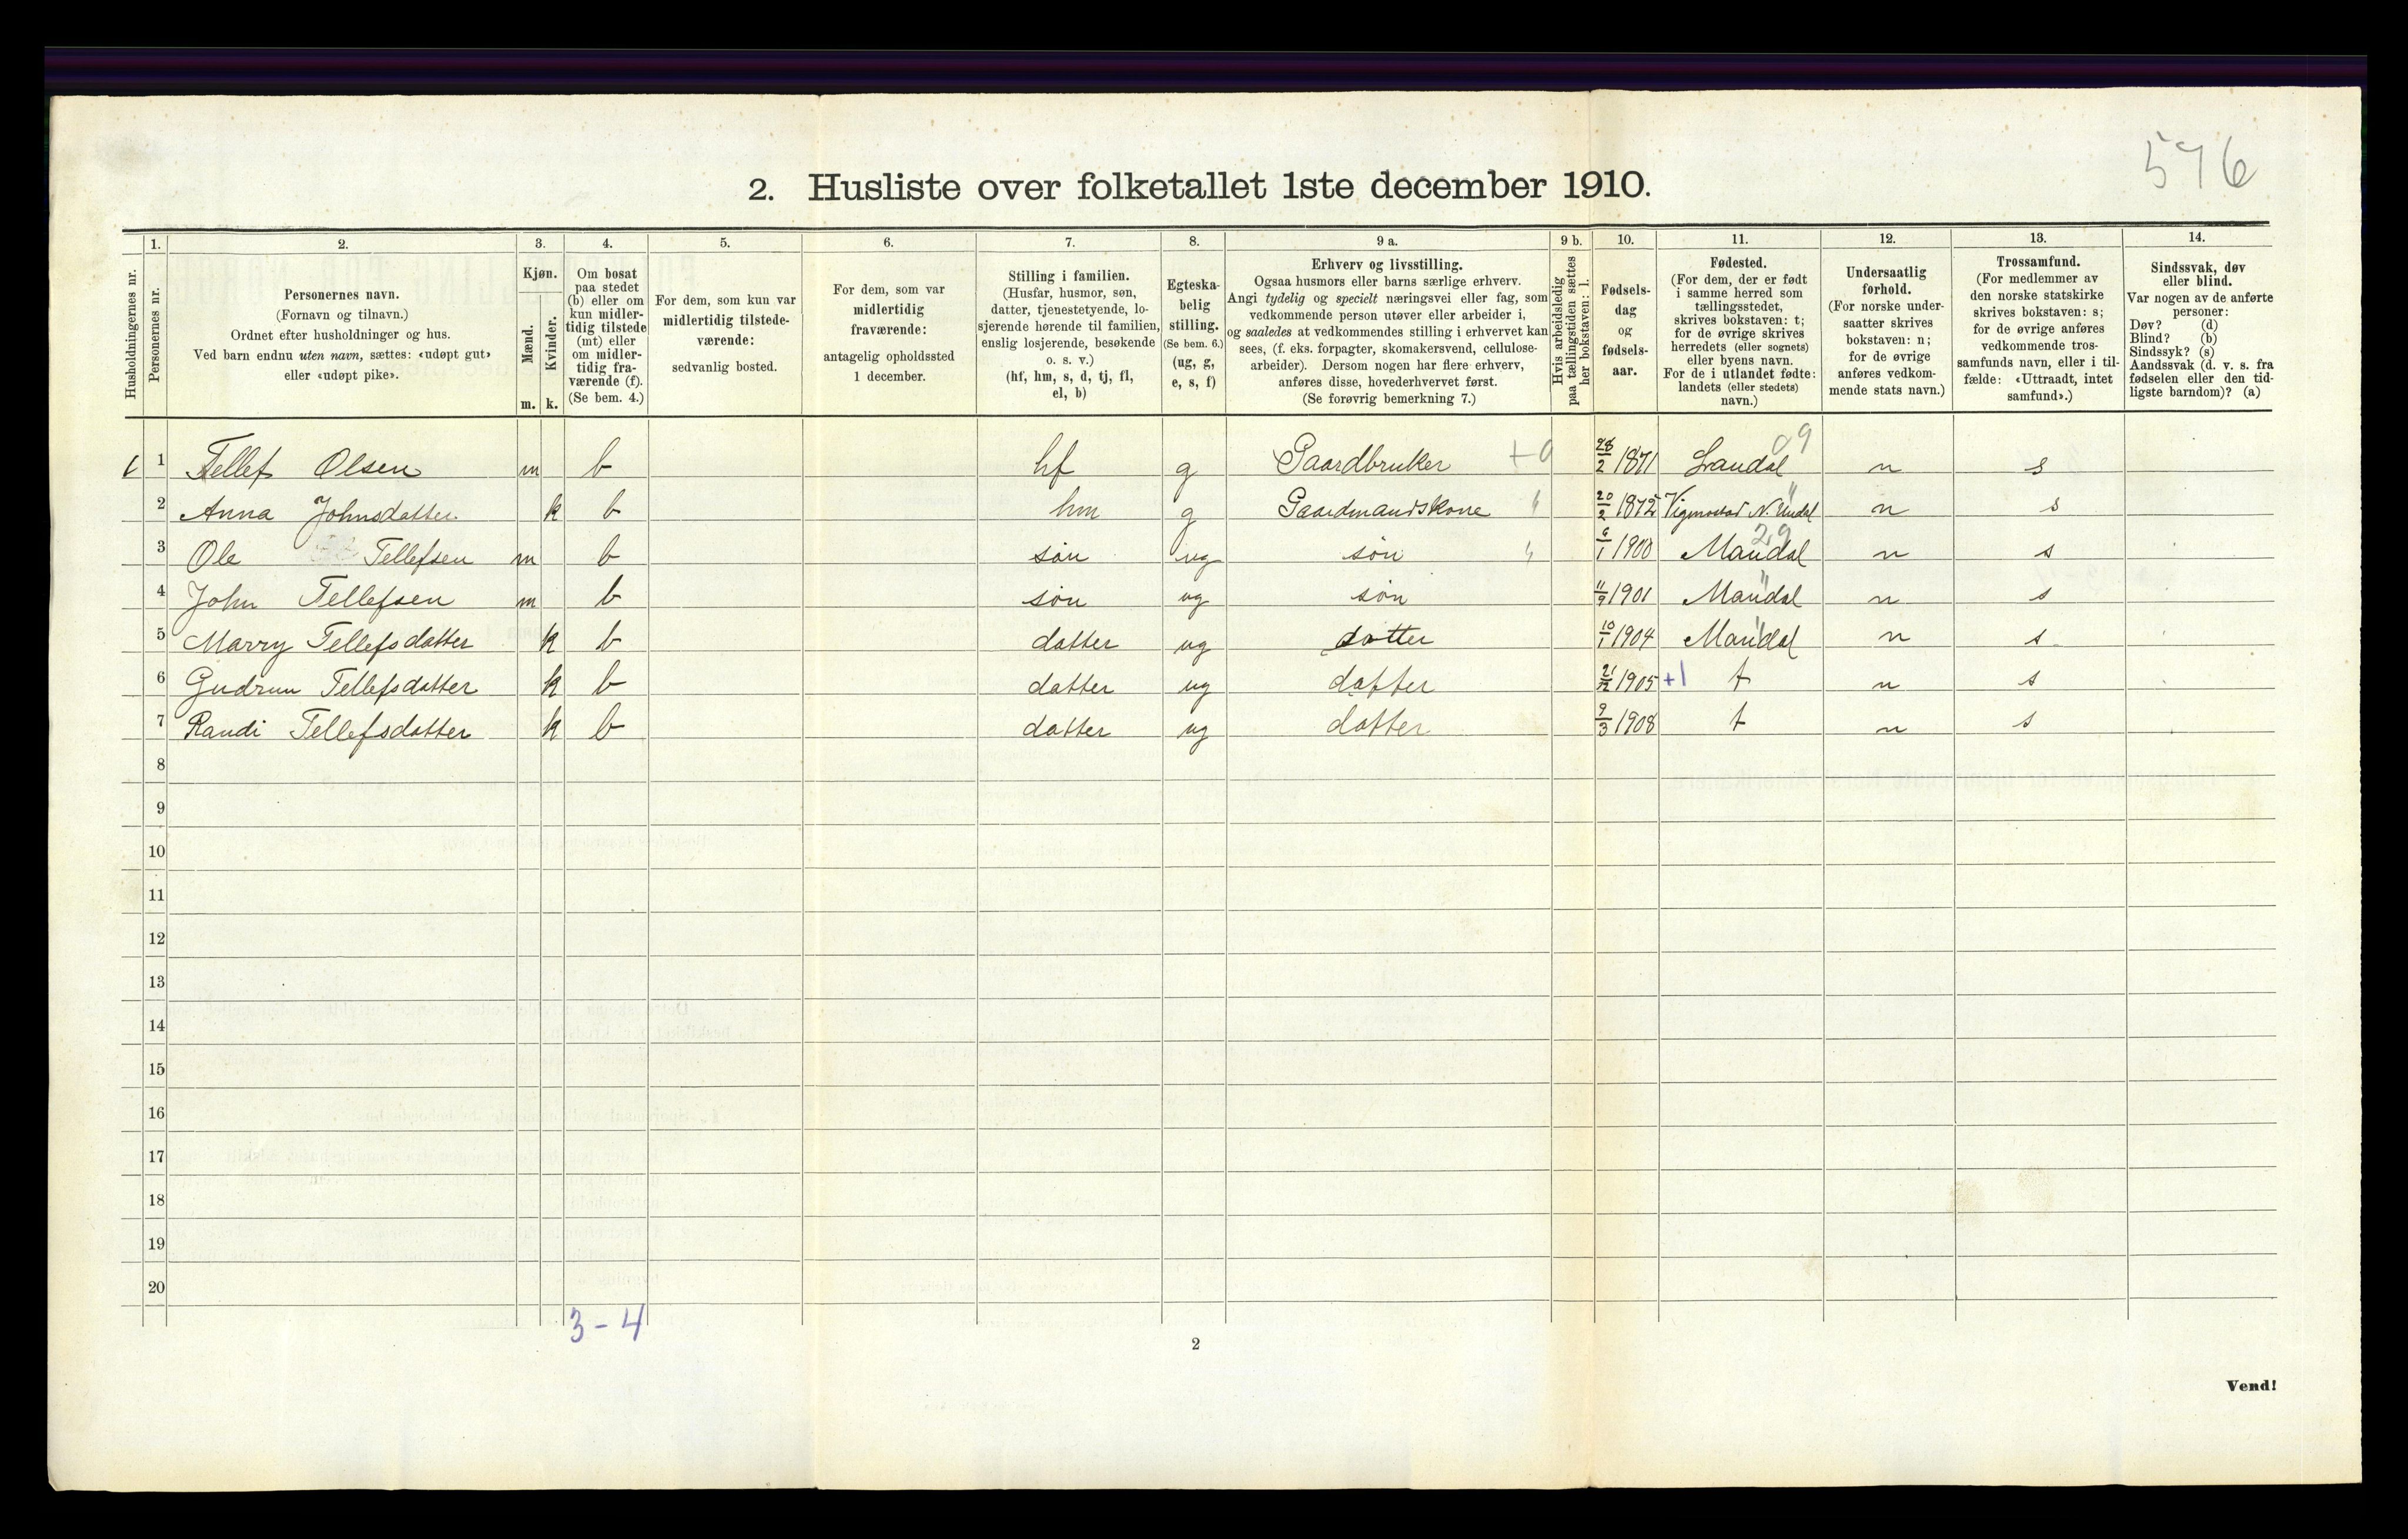 576
2. Husliste over folketallet 1ste december 1910.
Husholdningernes nr.
1. Personernes nr.
2. Personernes navn. (Fornavn og tilnavn.) Ordnet efter husholdninger og hus. Ved barn endnu uten navn, sættes: «udøpt gut» eller «udøpt pike».
3. Kjøn. Mænd. m. Kvinder. k.
4. Om bosat paa stedet (b) eller om kun midler-tidig tilstede (mt) eller om midler-tidig fra-værende (f). (Se bem. 4.)
5. For dem, som kun var midlertidig tilstede-værende: sedvanlig bosted.
6. For dem, som var midlertidig fraværende: antagelig opholdssted 1 december.
7. Stilling i familien. (Husfar, husmor, søn, datter, tjenestetyende, lo-sjerende hørende til familien, enslig losjerende, besøkende o. s. v.) (hf, hm, s, d, tj, fl, el, b)
8. Egteska-belig stilling. (Se bem. 6.) (ug, g, e, s, f)
9 a. Erhverv og livsstilling. Ogsaa husmors eller barns særlige erhverv. Angi tydelig og specielt næringsvei eller fag, som vedkommende person utøver eller arbeider i, og saaledes at vedkommendes stilling i erhvervet kan sees, (f. eks. forpagter, skomakersvend, cellulose-arbeider). Dersom nogen har flere erhverv, anføres disse, hovederhvervet først. (Se forøvrig bemerkning 7.)
9 b. Hvis arbeidsledig paa tællingstiden sættes her bokstaven: l.
10. Fødsels-dag og fødsels-aar.
11. Fødested. (For dem, der er født i samme herred som tællingsstedet, skrives bokstaven: t; for de øvrige skrives herredets (eller sognets) eller byens navn. For de i utlandet fødte: landets (eller stedets) navn.)
12. Undersaatlig forhold. (For norske under-saatter skrives bokstaven: n; for de øvrige anføres vedkom-mende stats navn.)
13. Trossamfund. (For medlemmer av den norske statskirke skrives bokstaven: s; for de øvrige anføres vedkommende tros-samfunds navn, eller i til-fælde: «Uttraadt, intet samfund».)
14. Sindssvak, døv eller blind. Var nogen av de anførte personer: Døv? (d) Blind? (b) Sindssyk? (s) Aandssvak (d. v. s. fra fødselen eller den tid-ligste barndom)? (a)
1 Tellef Olsen m b hf g Gaardbruker +0 28/2 1871 Laudal 09 n s
2 Anna Johnsdatter k b hm g Gaardmandskone " 20/2 1872 Vigmostad N. Undal " n s
3 Ole Tellefsen m b søn ug søn " 6/1 1900 Mandal 29 n s
4 John Tellefsen m b søn ug søn 11/9 1901 Mandal " n s
5 Marry Tellefsdatter k b datter ug datter 10/1 1904 Mandal " n s
6 Gudrun Tellefsdatter k b datter ug datter 21/12 1905 +1 t n s
7 Randi Tellefsdatter k b datter ug datter 9/3 1908 t n s
8
9
10
11
12
13
14
15
16
17
18
19
20
3-4
2
Vend!